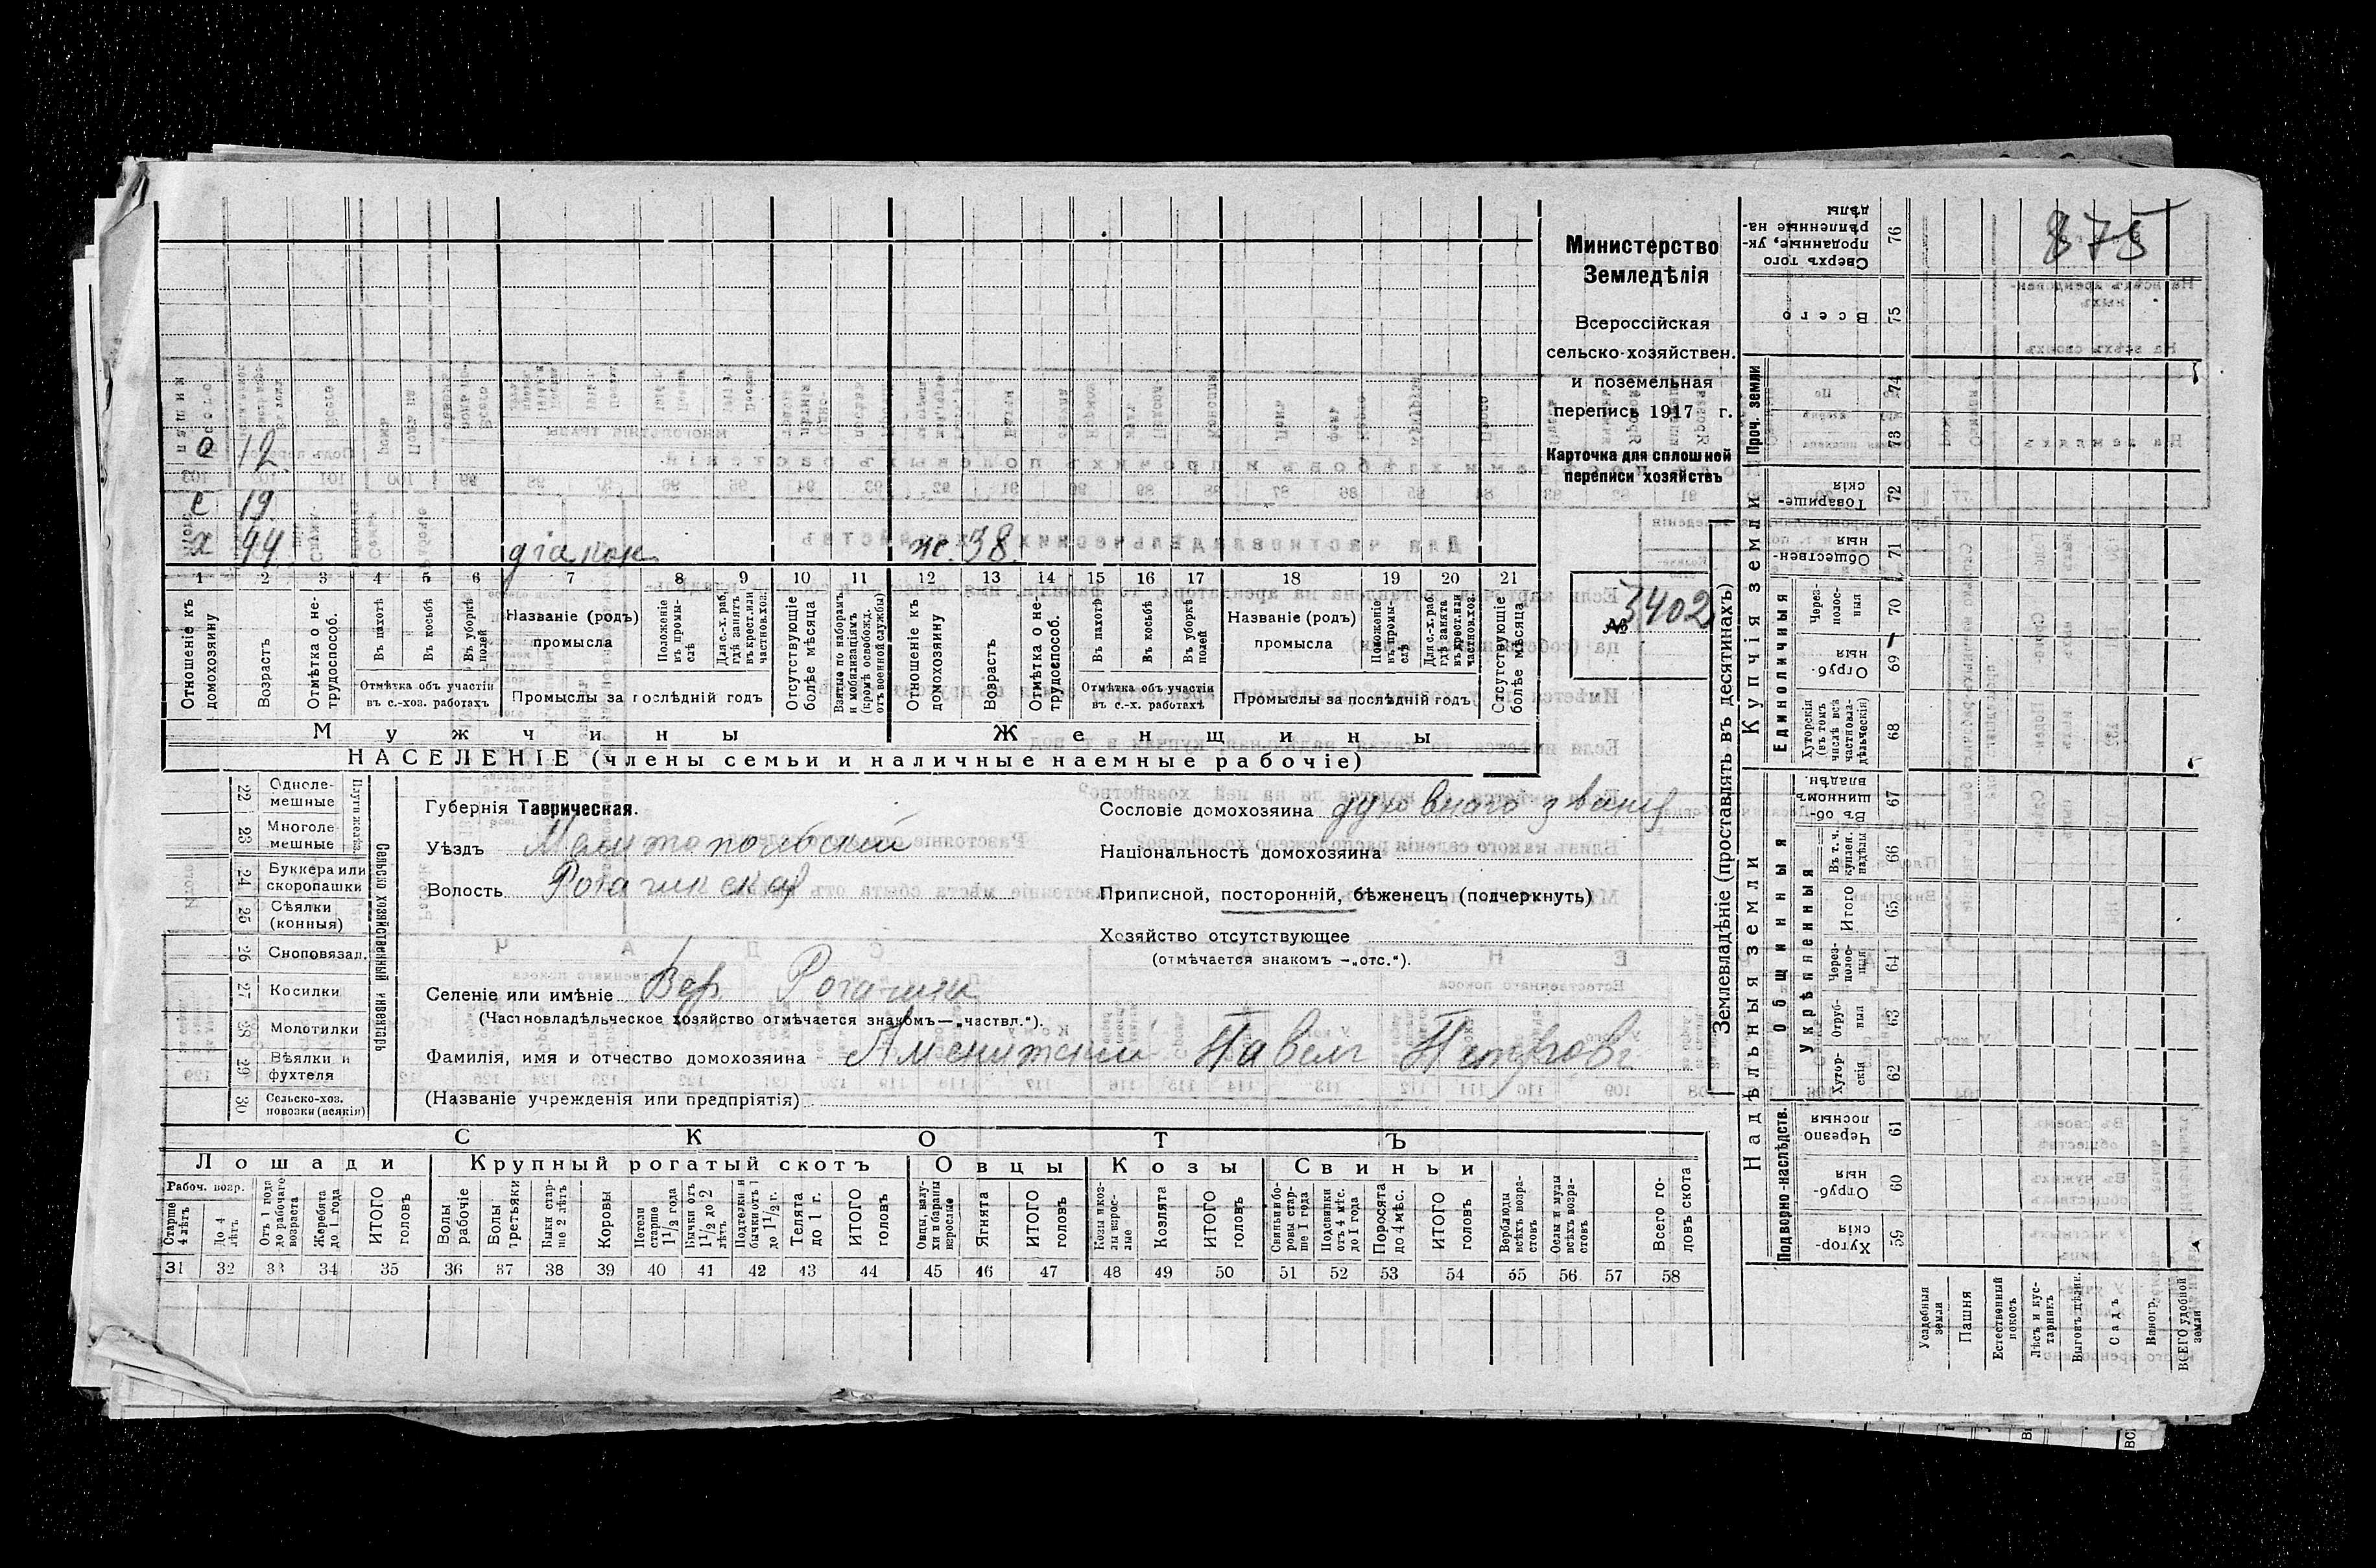 875
Министерство
Земледѣлія
Всероссійская
сельско-хозяйствен.
и поземельная
перепись 1917 г.
Карточка для сплошной
переписи хозяйствъ
№ 3402
12
с 19
х 44 діакон ж. 38
1 2 3 4 5 6 7 8 9 10 11 12 13 14 15 16 17 18 19 20 21
Отношеніе къ домохозяину
Возрастъ
Отмѣтка о нетрудоспособ.
Въ пахотѣ
Въ косьбѣ
Въ уборкѣ полей
Отмѣтка объ участіи въ с.-хоз. работахъ
Названіе (родъ) промысла
Положеніе въ промыслѣ
Для с.-х. раб. гдѣ занятъ въ крест. или частнов. хоз.
Промыслы за послѣдній годъ
Отсутствующіе болѣе мѣсяца
Взятые по наборамъ и мобилизаціямъ (кромѣ освобожд. отъ военной службы)
Отношеніе къ домохозяину
Возрастъ
Отмѣтка о нетрудоспособ.
Въ пахотѣ
Въ косьбѣ
Въ уборкѣ полей
Отмѣтка объ участіи въ с.-х. работахъ
Названіе (родъ) промысла
Положеніе въ промыслѣ
Для с.-х. раб. гдѣ занята въ крест. или частнов. хоз.
Промыслы за послѣдній годъ
Отсутствующіе болѣе мѣсяца
Мужчины Женщины
НАСЕЛЕНІЕ (члены семьи и наличные наемные рабочіе)
Сельско хозяйственный инвентарь
22 Однолемешные
23 Многолемешные
24 Буккера или скоропашки
25 Сѣялки (конныя)
26 Сноповязал.
27 Косилки
28 Молотилки
29 Вѣялки и фухтеля
30 Сельско-хоз. повозки (всякія)
Губернія Таврическая.
Уѣздъ Мелитопольскій
Волость Рогачикская
Сословіе домохозяина духовнаго званія
Національность домохозяина
Приписной, посторонній, бѣженец (подчеркнуть)
Хозяйство отсутствующее
(отмѣчается знакомъ —„отс.“).
Селеніе или имѣніе Вер. Рогачик
(Частновладѣльческое хозяйство отмѣчается знакомъ—„частвл.“).
Фамилія, имя и отчество домохозяина Павелъ Петровъ
(Названіе учрежденія или предпріятія)
СКОТЪ
Лошади Крупный рогатый скотъ Овцы Козы Свиньи
Рабоч. возр.
Старше 4 лѣтъ
До 4 лѣтъ
Отъ 1 года до рабочаго возраста
Жеребята до 1 года
ИТОГО головъ
Волы рабочіе
Волы третьяки
Быки старше 2 лѣтъ
Коровы
Нетели старше 1 1/2 года
Бычки отъ 1 1/2 до 2 лѣтъ
Подтелки и бычки отъ 1 до 1 1/2 г.
Телята до 1 г.
ИТОГО головъ
Овцы, валухи и бараны взрослые
Ягнята
ИТОГО головъ
Козы и козлы взрослые
Козлята
ИТОГО головъ
Свиньи боровы старше 1 года
Подсвинки отъ 4 мѣс. до 1 года
Поросята до 4 мѣс.
ИТОГО головъ
Верблюды всѣхъ возрастовъ
Ослы и мулы всѣхъ возрастовъ
Всего головъ скота
31 32 33 34 35 36 37 38 39 40 41 42 43 44 45 46 47 48 49 50 51 52 53 54 55 56 57 58
Землевладѣніе (проставлять въ десятинахъ)
Купчія земли
Надѣльныя земли
Сверхъ того проданные, укрѣпленные надѣлы 76
Всего 75
Проч. земли
74
73
Товарищескія 72
Общественныя 71
Единоличныя
Черезполосныя 70
Отрубныя 69
Хуторскія (въ томъ числѣ вся частновладѣльческія) 68
Общинныя
Въ общинномъ владѣн. 67
Укрѣпленныя
Въ т. ч. куплен. надѣлы 66
Итого 65
Черезполосныя 64
Отрубныя 63
Хуторскія 62
Подворно-наслѣдств.
Черезполосныя 61
Отрубныя 60
Хуторскія 59
Усадебныя земли
Пашня
Естественный покосъ
Лѣсъ и кустарникъ
Выгонъ цѣлин.
Садъ
Виногр.
ВСЕГО удобной земли